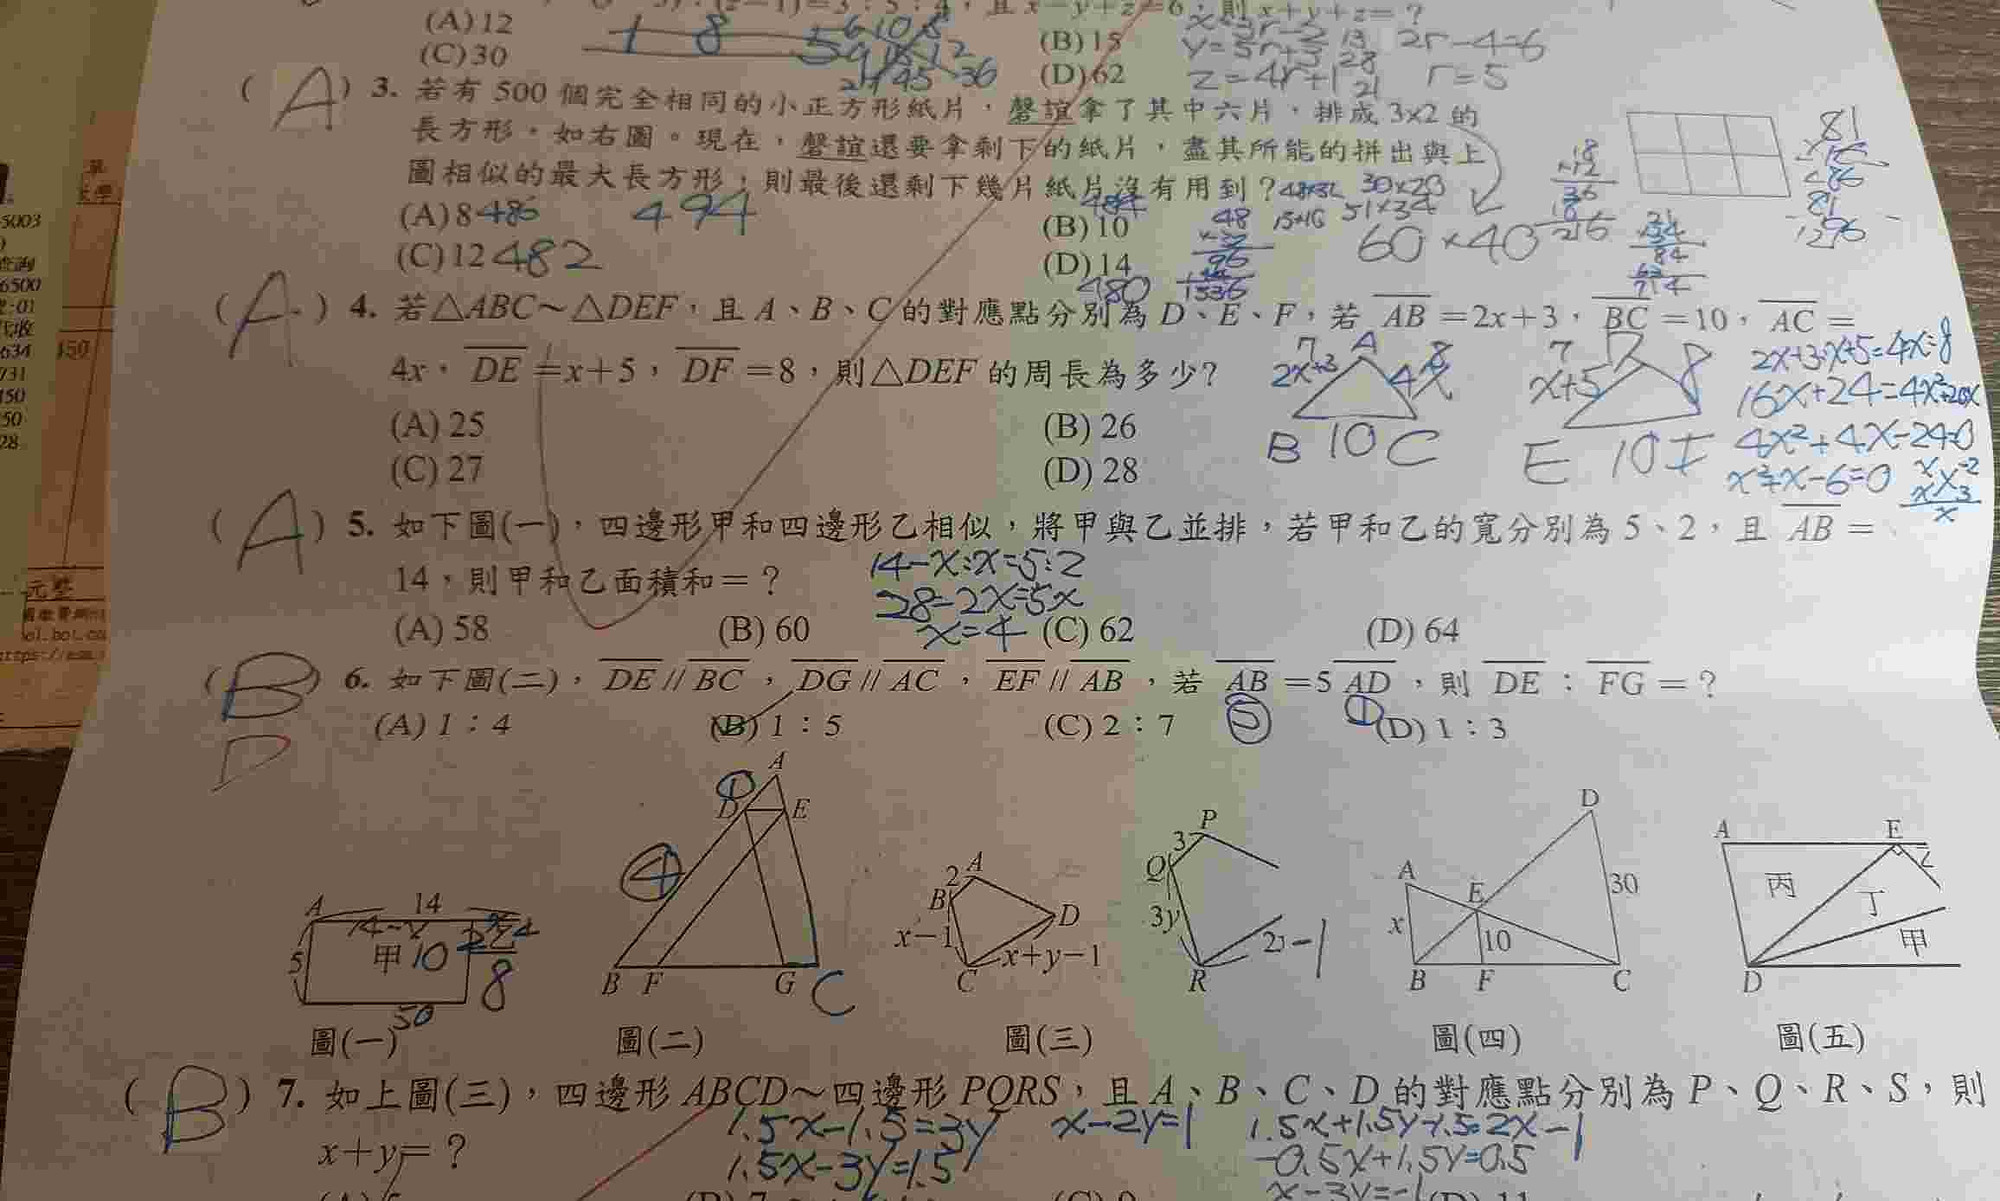 (A) 12
(C) 30
(B) 15
(D) 62
x=3r-2
y=5r+3
z=4r+1
13
28
21
2r-4=6
r=5
( A ) 3. 若有 500 個完全相同的小正方形紙片，磬誼拿了其中六片，排成 3x2 的
長方形，如右圖。現在，磬誼還要拿剩下的紙片，盡其所能的拼出與上
圖相似的最大長方形，則最後還剩下幾片紙片沒有用到？
30x20
51x34
60x40
(A) 8 486
494
(B) 10
(C) 12 482
(D) 14
480
( A ) 4. 若△ABC～△DEF，且 A、B、C 的對應點分別為 D、E、F，若 AB =2x+3，BC =10，AC =
4x，DE =x+5，DF =8，則△DEF 的周長為多少?
(A) 25
(B) 26
(C) 27
(D) 28
7 A 8
2x+3 4x
B 10 C
7 8
x+5
E 10 F
2x+3:x+5=4x:8
16x+24=4x²+20x
4x²+4x-24=0
x²+x-6=0
( A ) 5. 如下圖(一)，四邊形甲和四邊形乙相似，將甲與乙並排，若甲和乙的寬分別為 5、2，且 AB =
14，則甲和乙面積和=？
14-x:x=5:2
28-2x=5x
x=4
(A) 58
(B) 60
(C) 62
(D) 64
( B ) 6. 如下圖(二)，DE // BC，DG // AC，EF // AB，若 AB =5 AD，則 DE：FG =？
(A) 1：4
(B) 1：5
(C) 2：7
(D) 1：3
5 1
D
A 14
14-x
5 甲 10
8
50
圖(一)
1 A
D E
4
B F G C
圖(二)
2 A
B D
x-1
C x+y-1
圖(三)
P
3
Q
3y
R
D
A E 30
x 10
B F C
圖(四)
A E
丙 乙
丁
甲
D
圖(五)
( B ) 7. 如上圖(三)，四邊形 ABCD～四邊形 PQRS，且 A、B、C、D 的對應點分別為 P、Q、R、S，則
x+y=？
1.5x-1.5=3y
1.5x-3y=1.5
x-2y=1
1.5x+1.5y-1.5=2x-1
-0.5x+1.5y=0.5
x-3y=-1